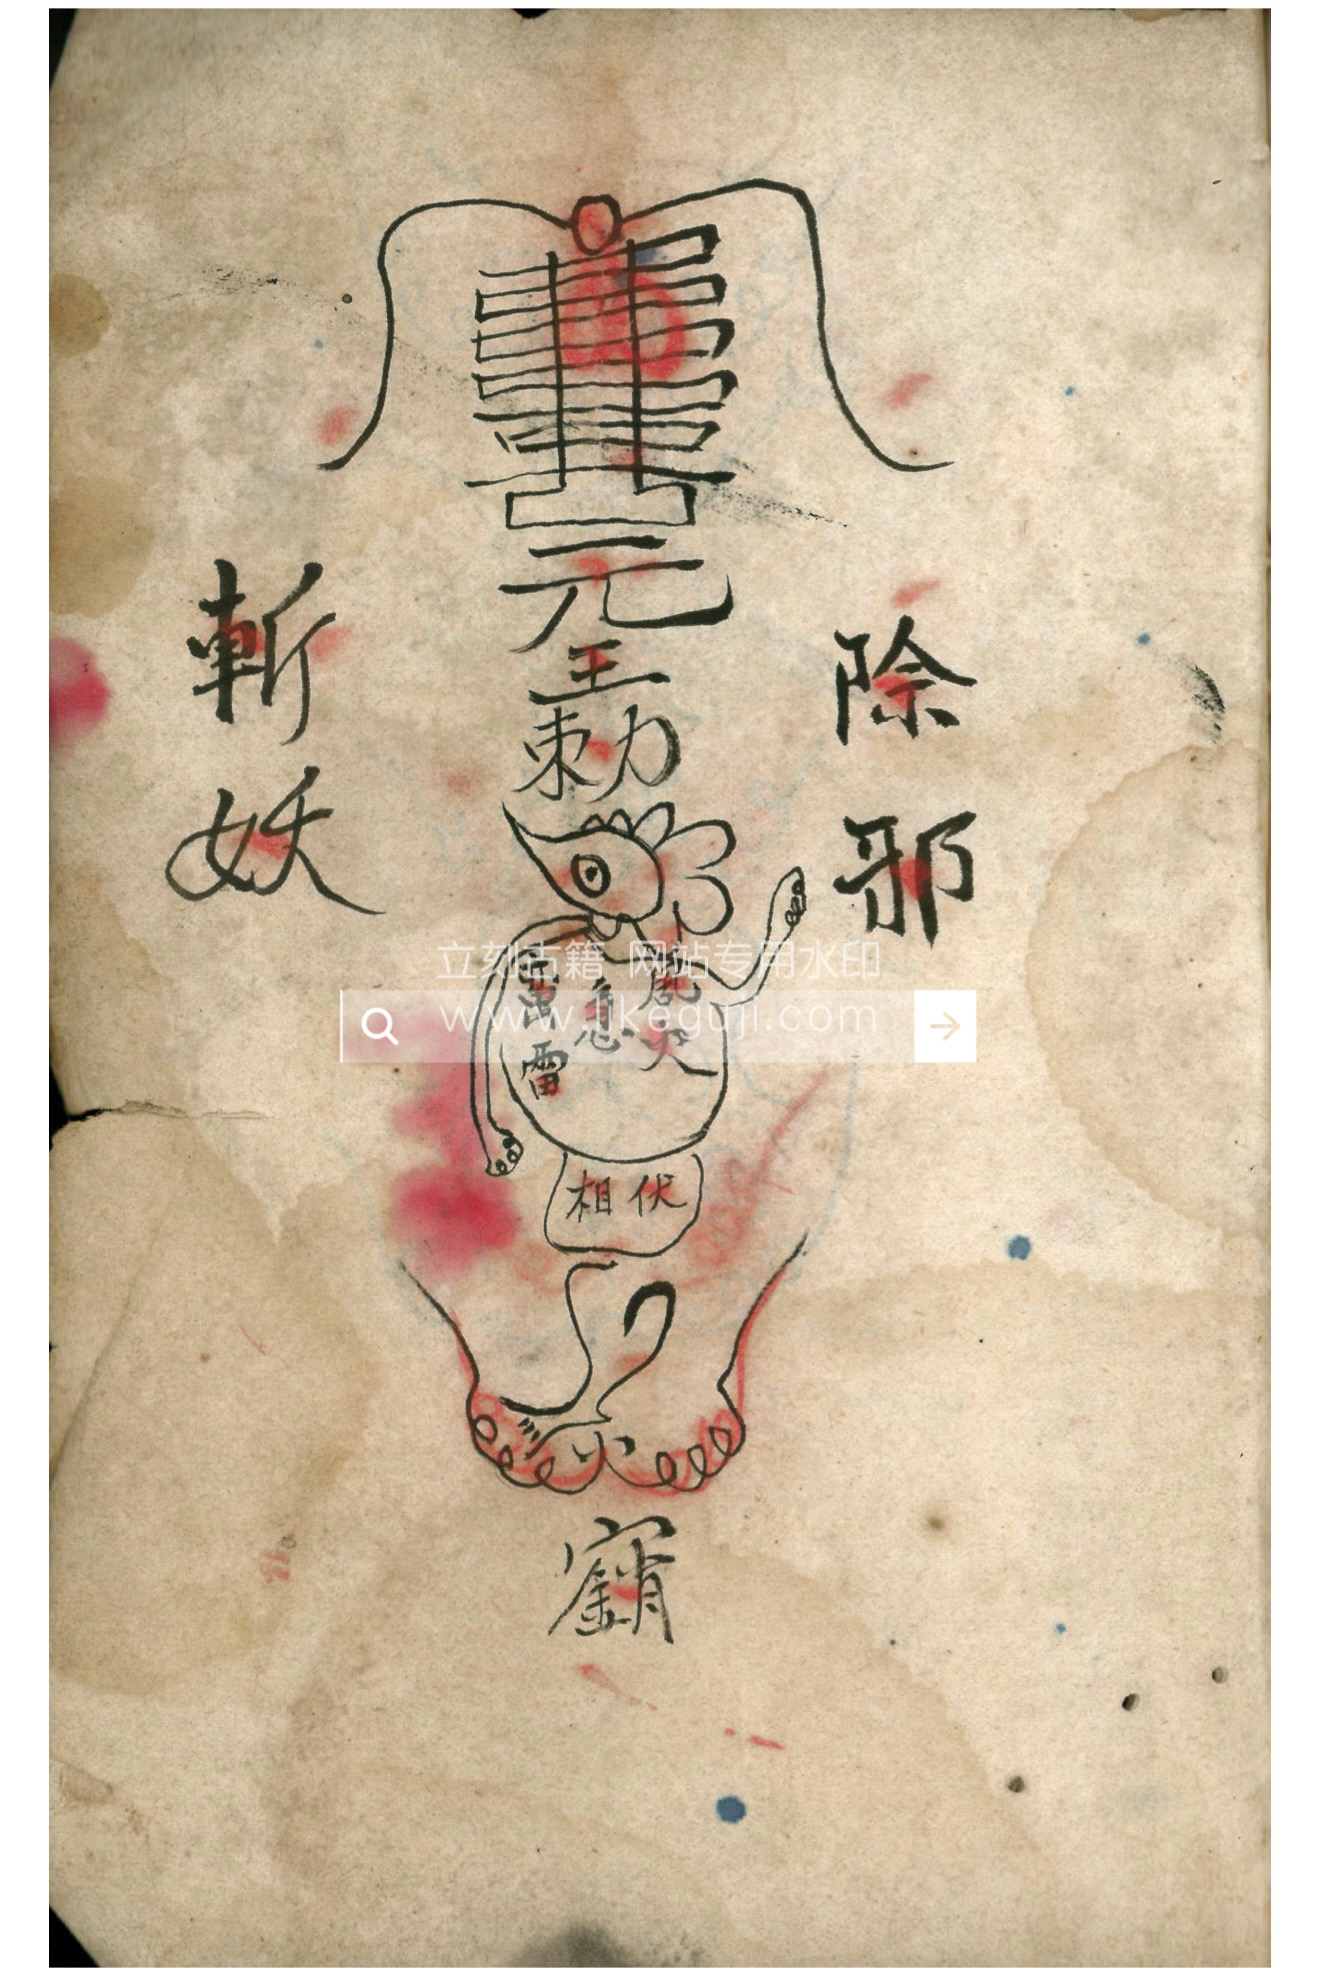 元
王
勅
除邪
斬妖
急
火
雷
相伏
立刻古籍 网站专用水印
www.likeguji.com